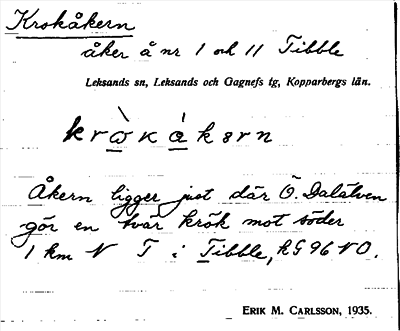 Krokåkern
åker å nr 1 och 11 Tibble
Leksands sn, Leksands och Gagnefs tg, Kopparbergs län.
Åkern ligger just där Ö. Dalälven
gör en tvär krök mot söder
1 km N T i Tibble, RG 96 NO.
ERIK M. CARLSSON, 1935.